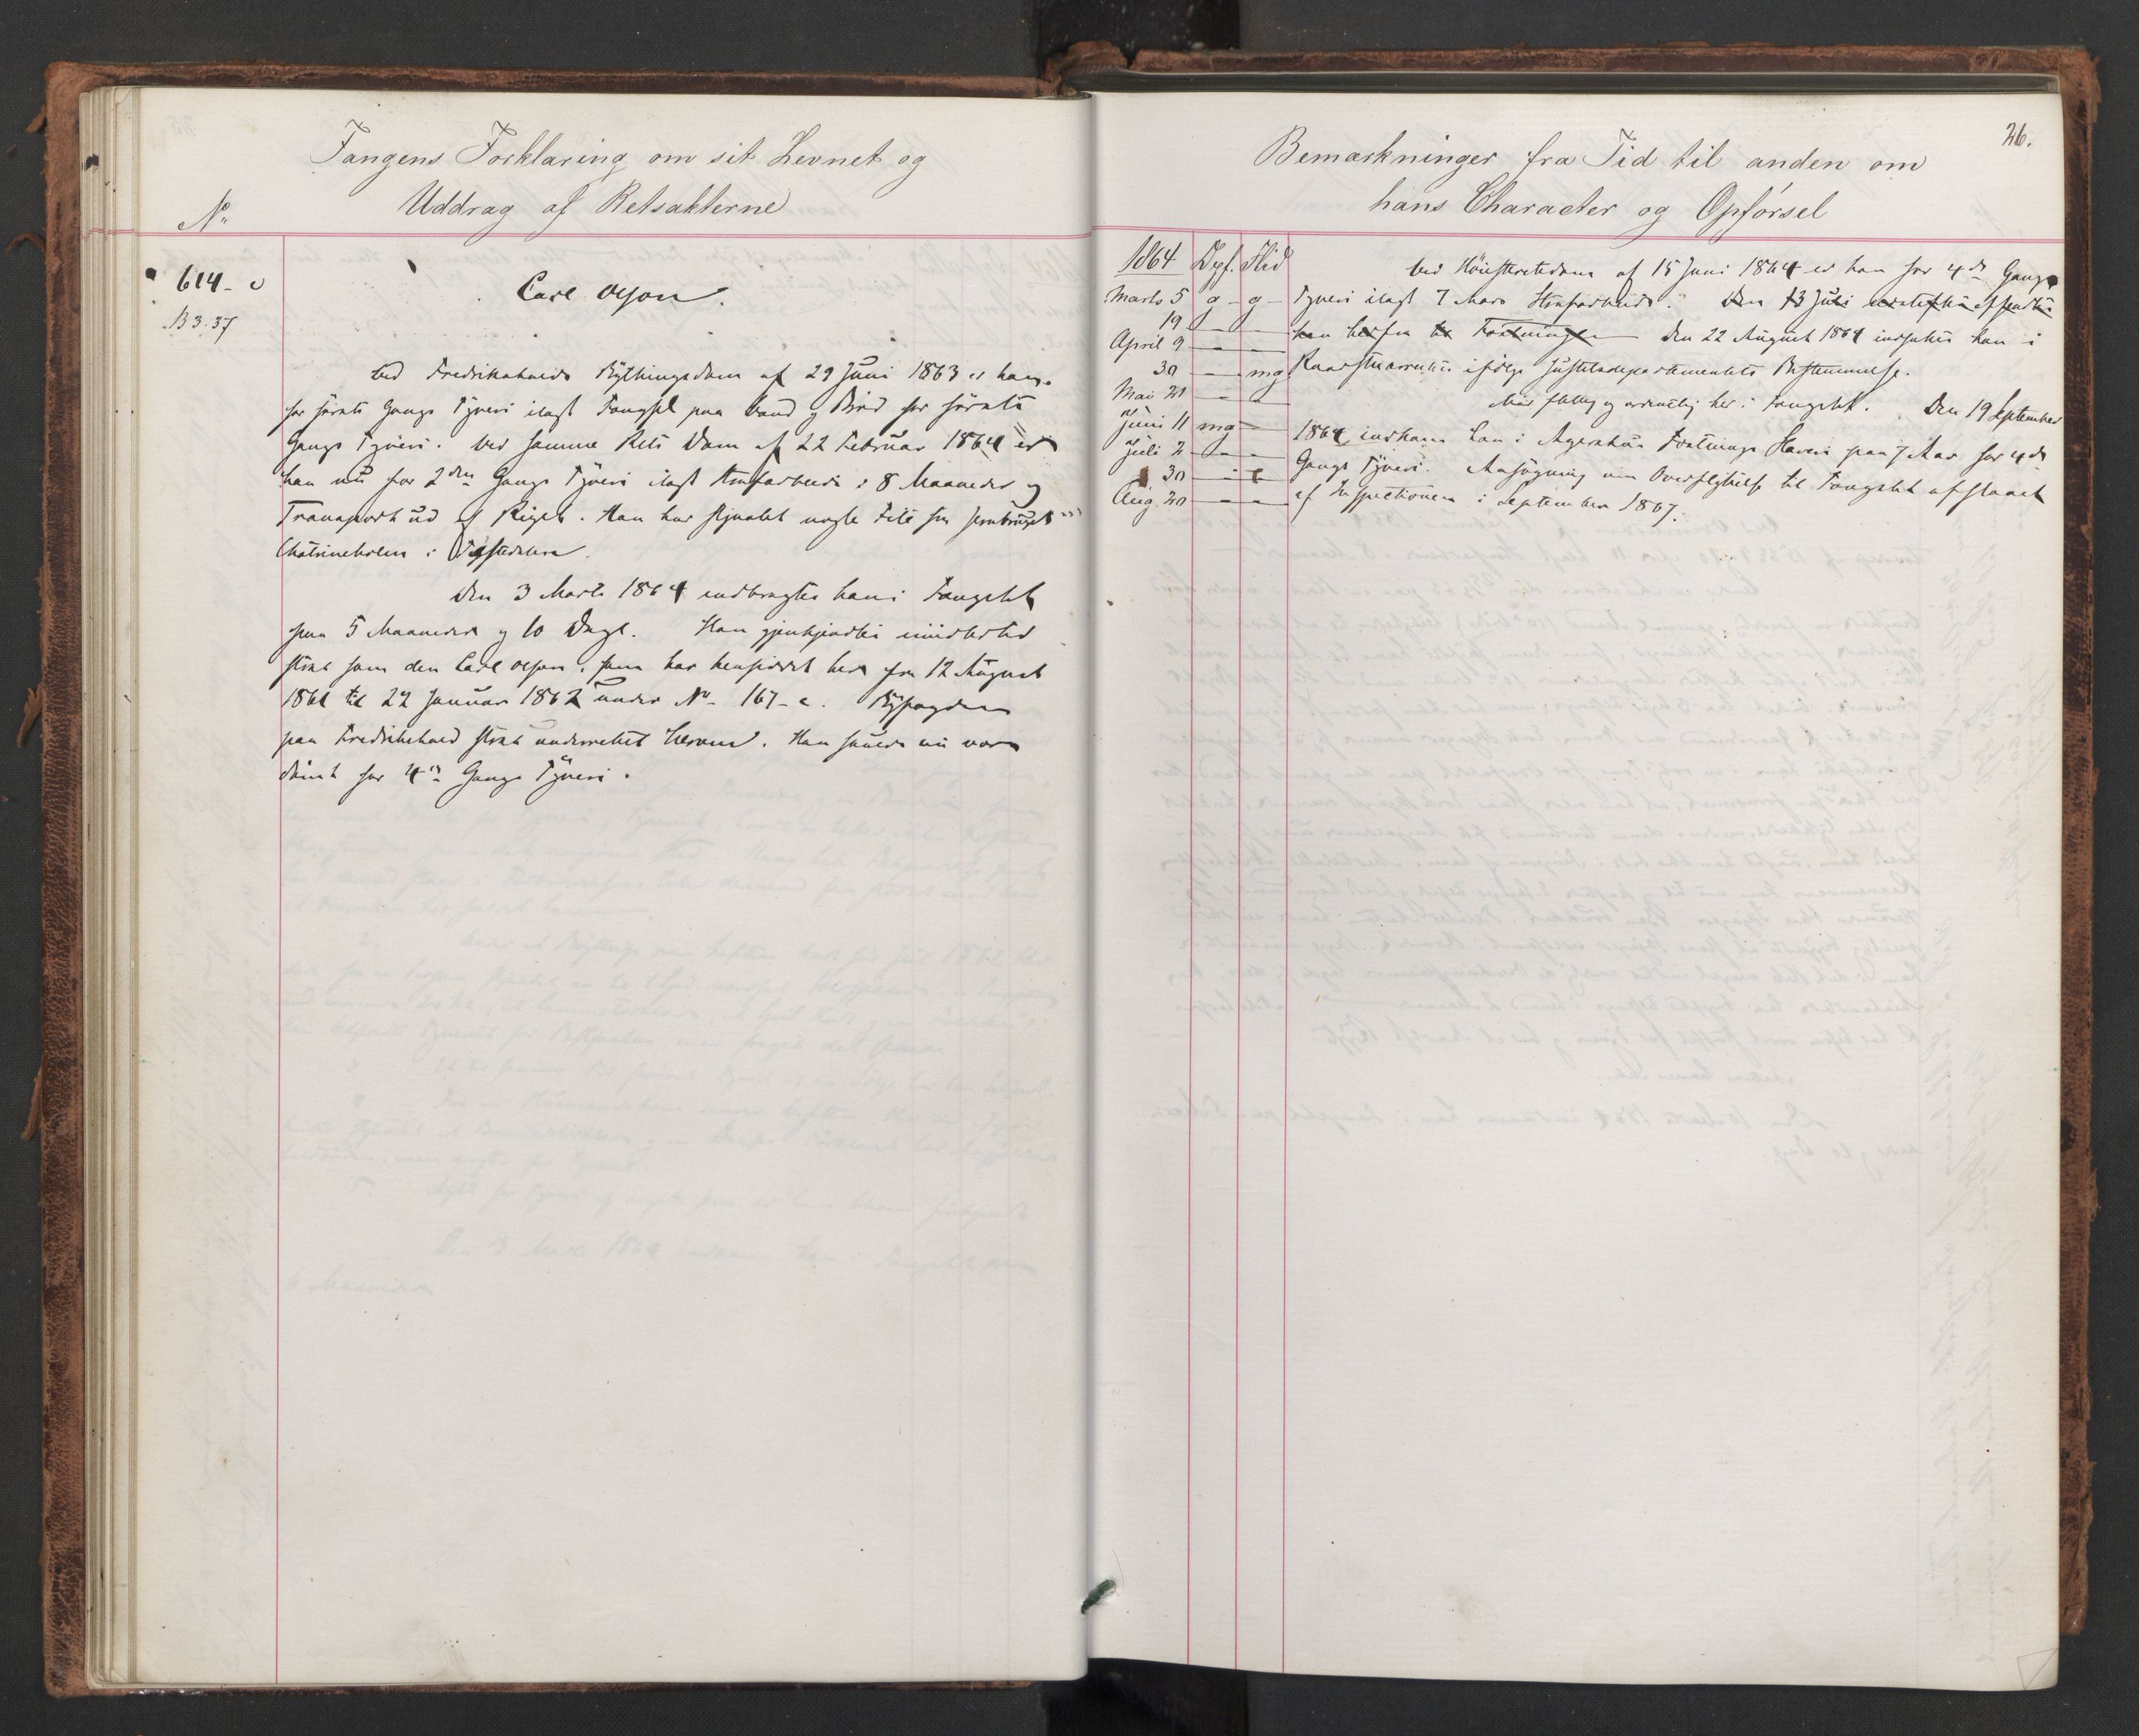 Fangens Forklaring om sit Levnet og
Uddrag af Retsakterne
No
614-c
B 3.37
Carl Olson.
Ved Fredrikshalds Bythingsdom af 29 Juni 1863 er han
for første Gangs Tyveri ilagt Fængsel paa Vand og Brød for første
Gangs Tyveri. Ved samme Rets Dom af 22 Februar 1864 er
han nu for 2den Gangs Tyveri ilagt Strafarbeide i 8 Maaneder og
Transport ud af Riget. Han har stjaalet nogle File fra Jernbruget
Chatrineholm i Tistedalen.
Den 3 Marts 1864 indbragtes han i Fængslet
paa 5 Maaneder og 10 Dage. Han gjenkjendtes imidlertid
strax som den Carl Olson, som har hensiddet her fra 12 August
1861 til 22 Januar 1862 under No 167-c. Byfogden
paa Fredrikshald strax underrettet herom. Han skulde nu være
dømt for 4de Gangs Tyveri.
Bemærkninger fra Tid til anden om
hans Character og Opførsel
26.
1864 Opf. Flid
Marts 5 g - g -
19 - -
April 9 - -
30 - mg
Mai 21 - -
Juni 11 mg -
Juli 2 - -
30 - -
Aug. 20 - -
Ved Høiesteretsdom af 15 Juni 1864 er han for 4de Gangs
Tyveri ilagt 7 Aars Strafarbeide. Den 13 Juli
han herfra til Fæstningen Den 22 August 1864 indsattes han i
Raadstuearresten ifølge Justitsdepartementets Bestemmelse.
Var flittig og ordentlig her i Fængslet. Den 19 September
1864 indkom han i Agershus Fæstnings Slaveri paa 7 Aar for 4de
Gangs Tyveri. Ansøgning om Overflyttelse til Fængslet afslaaet
af Inspectionen i September 1867.